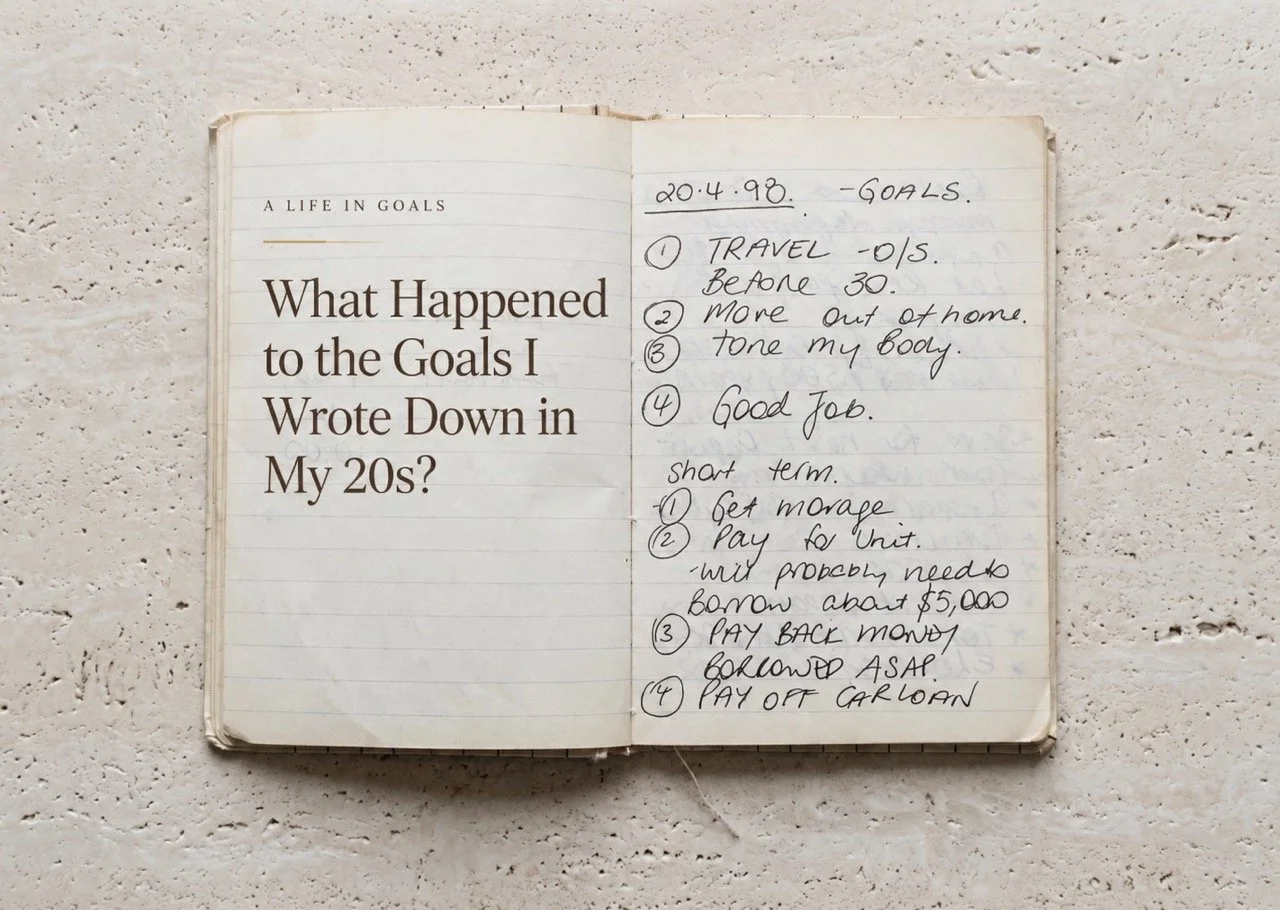 A LIFE IN GOALS
What Happened
to the Goals I
Wrote Down in
My 20s?
20.4.98. -GOALS.
① TRAVEL -O/S.
Before 30.
② Move out of home.
③ Tone my Body.
④ Good Job.
short term.
-① Get morage
② Pay for Unit.
-will probably need to
Borrow about $5,000
③ PAY BACK MONEY
BORROWED ASAP.
④ PAY OFF CAR LOAN